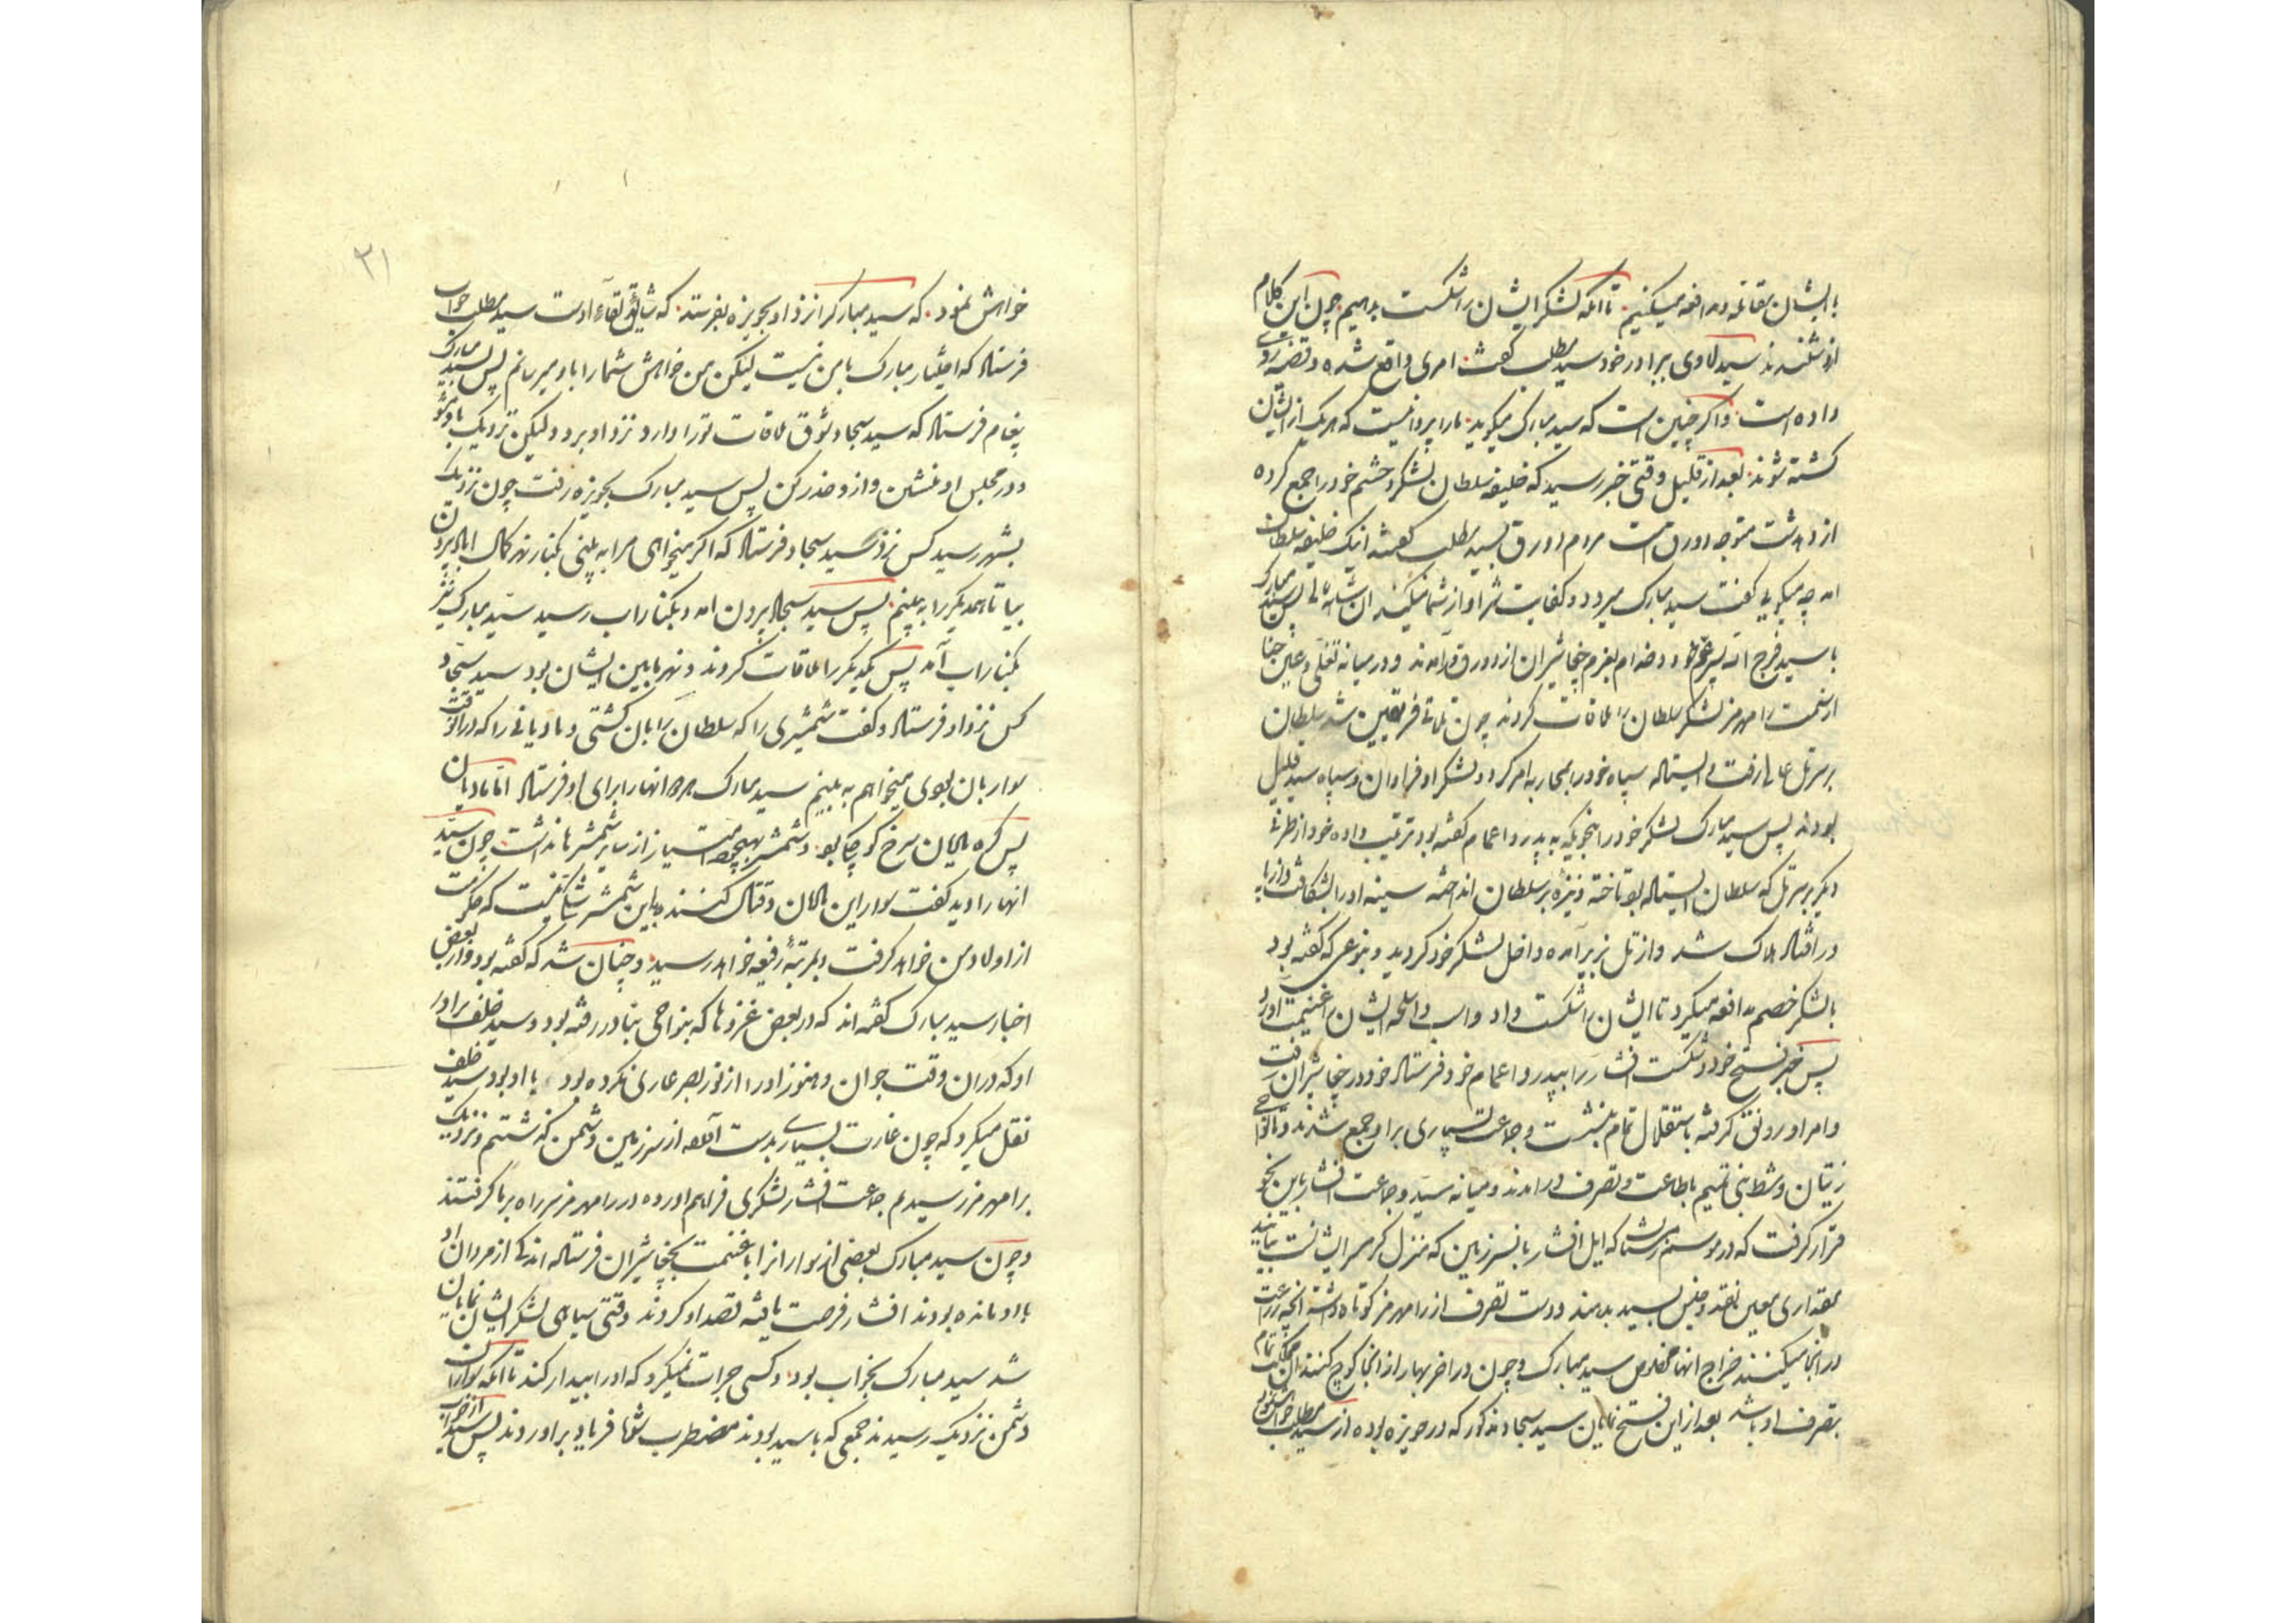 با ایشان مقاتله و مدافعه میکنیم تا آنکه لشکر ایشان را شکست بدهیم چون این کلام
از و شنیدند سید لاوی برادر خود سید مطلب گفت امری واقع شده و قضیه روی
داده است و اگر چنین است که سید مبارک میگوید ما را پروا نیست که هر یک از ایشان
کشته شوند بعد از قلیل وقتی خبر رسید که خلیفه سلطان لشکر و حشم خود را جمع کرده
از دهدشت متوجه دورق است مردم دورق بسید مطلب گفتند اینک خلیفه سلطان
آمد چه میگویی گفت سید مبارک میرود و کفایت شر او از شما میکند ان شاء الله تعالی پس سید مبارک
با سید فرج الله پسر عم خود و خدام بعزم خچاشیران از دورق در آمدند و در میانه
از سمت رامهرمز لشکر سلطان را ملاقات کردند چون تلاقی فریقین شد سلطان
بر سر تل عالی رفت و ایستاده سپاه خود را بمحاربه امر کرد و لشکر او فراوان و سپاه سید قلیل
بودند پس سید مبارک لشکر خود را بنحویکه به پدر و اعمام گفته بود ترتیب داده خود از طرفی
دیگر بر سر تل که سلطان ایستاده بود تاخته و نیزه بر سلطان انداخته سینه او را بشکافت و از پا
در افتاد هلاک شد و از تل بزیر آمده داخل لشکر خود گردید و بنوعی که گفته بود
با لشکر خصم مدافعه میکرد تا ایشان را شکست داد و اسب و اسلحه ایشان را غنیمت آورد
پس خبر فتح خود و شکست افشار را بپدر و اعمام خود فرستاد خود در خچاشیران رفت
و امر او رونق گرفته باستقلال تمام بنشست و جماعت بسیاری بر او جمع شدند و تا نواحی
زیتان و شط بنی تمیم باطاعت و تصرف در آمدند و میانه سید و جماعت افشار باین نحو
قرار گرفت که در موسم زمستان که ایل افشار بآن سرزمین که منزل گرمسیر ایشان است بیایند
مقداری معین نقد و جنس بسید بدهند و دست تصرف از رامهرمز کوتاه داشته آنچه زراعت
در انجا میکنند خراج آنها مخصوص سید مبارک و چون در آخر بهار از انجا کوچ کنند آن مملکت تمام
بتصرف او باشد بعد از این فتح نمایان سید سجاد مذکور که در حویزه بوده از سید مطلب
خواهش نمود که سید مبارک را نزد او بحویزه بفرستد که شایق لقاء اوست سید مطلب جواب
فرستاد که اختیار مبارک با من نیست لیکن من خواهش شما را باو میرسانم پس بسید مبارک
پیغام فرستاد که سید سجاد شوق ملاقات تو را دارد نزد او برو و لیکن نزدیک باو مشو
و در مجلس او منشین و از و حذر کن پس سید مبارک بحویزه رفت چون نزدیک
بشهر رسید کس نزد سید سجاد فرستاد که اگر میخواهی مرا به بینی بکنار نهر
بیا تا همدیگر را به بینیم پس سید سجاد بیرون آمد و بکنار آب رسید سید مبارک نیز
بکنار آب آمد پس یکدیگر را ملاقات کردند و نهر مابین ایشان بود سید سجاد
کس نزد او فرستاد و گفت شمشیری را که سلطان را بان کشتی و مادیانی را که در آنوقت
سوار بان بودی میخواهم به بینم سید مبارک هر دو آنها را برای او فرستاد اما مادیان
پس کره مادیان سرخ کوچک بود و شمشیر بهیچوجه امتیاز از سایر شمشیرها نداشت چون سید
آنها را دید گفت سوار این مادیان و قتال کننده باین شمشیر شکی نیست که حکومت
از اولاد من خواهد گرفت و بمرتبه رفیعه خواهد رسید و چنان شد که گفته بود و از بعض
اخبار سید مبارک گفته اند که در بعض غزوها که بنواحی بنادر رفته بود و سید خلف برادر
او که در ان وقت جوان و هنوز او را از نور بصر عاری نکرده بود با او بود سید خلف
نقل میکرد که چون غارت بسیاری بدست آمد از سرزمین دشمن گذشتیم و نزدیک
برامهرمز رسیدیم جماعت افشار لشکری فراهم آورده در رامهرمز سر راه بر ما گرفتند
و چون سید مبارک بعضی از سوارانرا با غنیمت بخچاشیران فرستاد اندکی از مردان او
با او مانده بودند افشار فرصت یافته قصد او کردند وقتی سیاهی لشکر ایشان نمایان
شد سید مبارک بخواب بود و کسی جرات نمیکرد که او را بیدار کند تا آنکه سواران
دشمن نزدیک رسیدند جمعی که با سید بودند مضطرب شده فریاد بر آوردند پس سید از خواب
۳۱